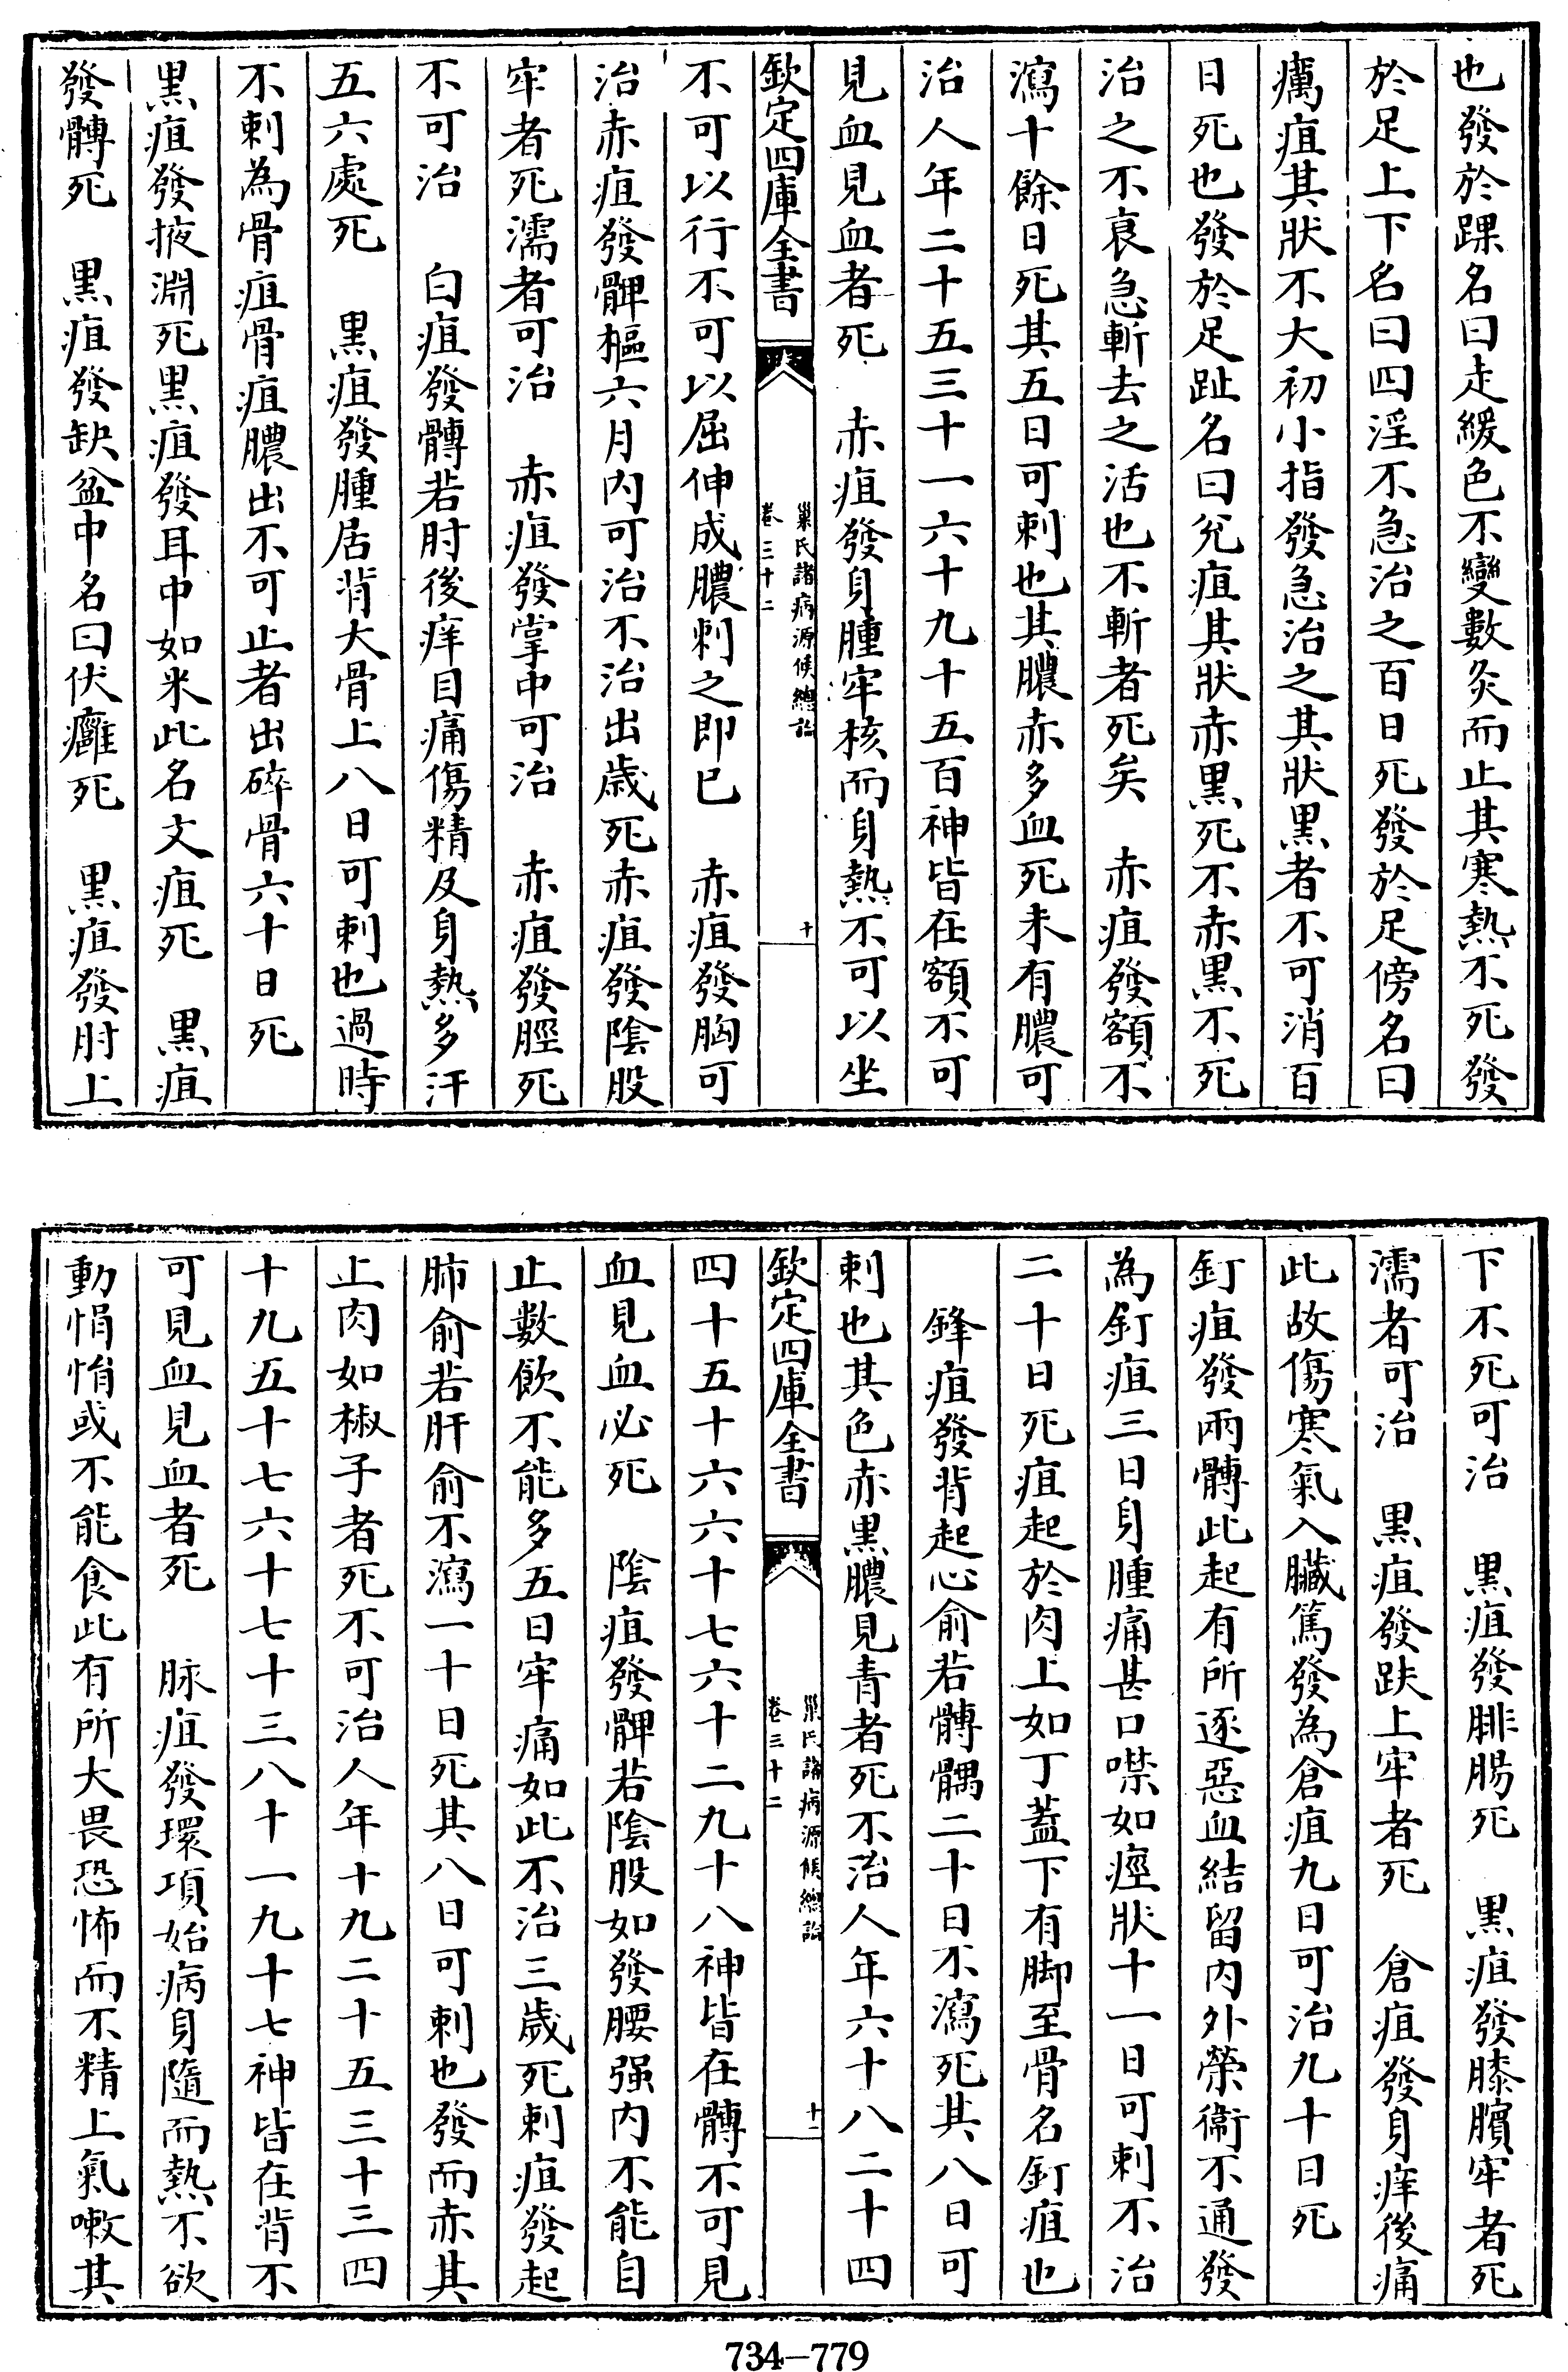 也發於踝名曰走緩色不變數灸而止其寒熱不死發
於足上下名曰四淫不急治之百日死發於足傍名曰
癘疽其狀不大初小指發急治之其狀黑者不可消百
日死也發於足趾名曰兊疽其狀赤黑死不赤黑不死
治之不衰急斬去之活也不斬者死矣　赤疽發額不
瀉十餘日死其五日可刺也其膿赤多血死未有膿可
治人年二十五三十一六十九十五百神皆在額不可
見血見血者死　赤疽發身腫牢核而身熱不可以坐
欽定四庫全書
巢氏諸病源候總論
卷三十二
十
不可以行不可以屈伸成膿刺之即已　赤疽發胸可
治赤疽發髀樞六月内可治不治出歲死赤疽發陰股
牢者死濡者可治　赤疽發掌中可治　赤疽發脛死
不可治　白疽發髆若肘後痒目痛傷精及身熱多汗
五六處死　黑疽發腫居背大骨上八日可刺也過時
不刺為骨疽骨疽膿出不可止者出碎骨六十日死
黑疽發掖淵死黑疽發耳中如米此名文疽死　黑疽
發髆死　黑疽發缺盆中名曰伏癰死　黑疽發肘上
下不死可治　黑疽發腓腸死　黑疽發膝臏牢者死
濡者可治　黑疽發趺上牢者死　倉疽發身痒後痛
此故傷寒氣入臟篤發為倉疽九日可治九十日死
釘疽發兩髆此起有所逐惡血結留内外榮衞不通發
為釘疽三日身腫痛甚口噤如痙狀十一日可刺不治
二十日死疽起於肉上如丁蓋下有脚至骨名釘疽也
鋒疽發背起心俞若髆髃二十日不瀉死其八日可
刺也其色赤黑膿見青者死不治人年六十八二十四
欽定四庫全書
巢氏諸病源候總論
卷三十二
十一
四十五十六六十七六十二九十八神皆在髆不可見
血見血必死　陰疽發髀若陰股如發腰强内不能自
止數飲不能多五日牢痛如此不治三歲死刺疽發起
肺俞若肝俞不瀉一十日死其八日可刺也發而赤其
止肉如椒子者死不可治人年十九二十五三十三四
十九五十七六十七十三八十一九十七神皆在背不
可見血見血者死　脉疽發環項始病身隨而熱不欲
動悁悁或不能食此有所大畏恐怖而不精上氣嗽其
734—779